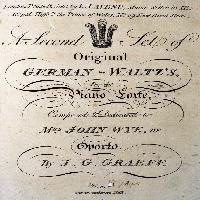 London Printed & Sold by L. LAVENU, Music Seller to His
Royal Highness the Prince of Wales, No 29 New Bond Street
A Second Set of
Original
GERMAN WALTZ'S,
for the
Piano Forte,
Composed & Dedicated to
Mrs JOHN WYE, of
Oporto.
By J. G. GRAEFF